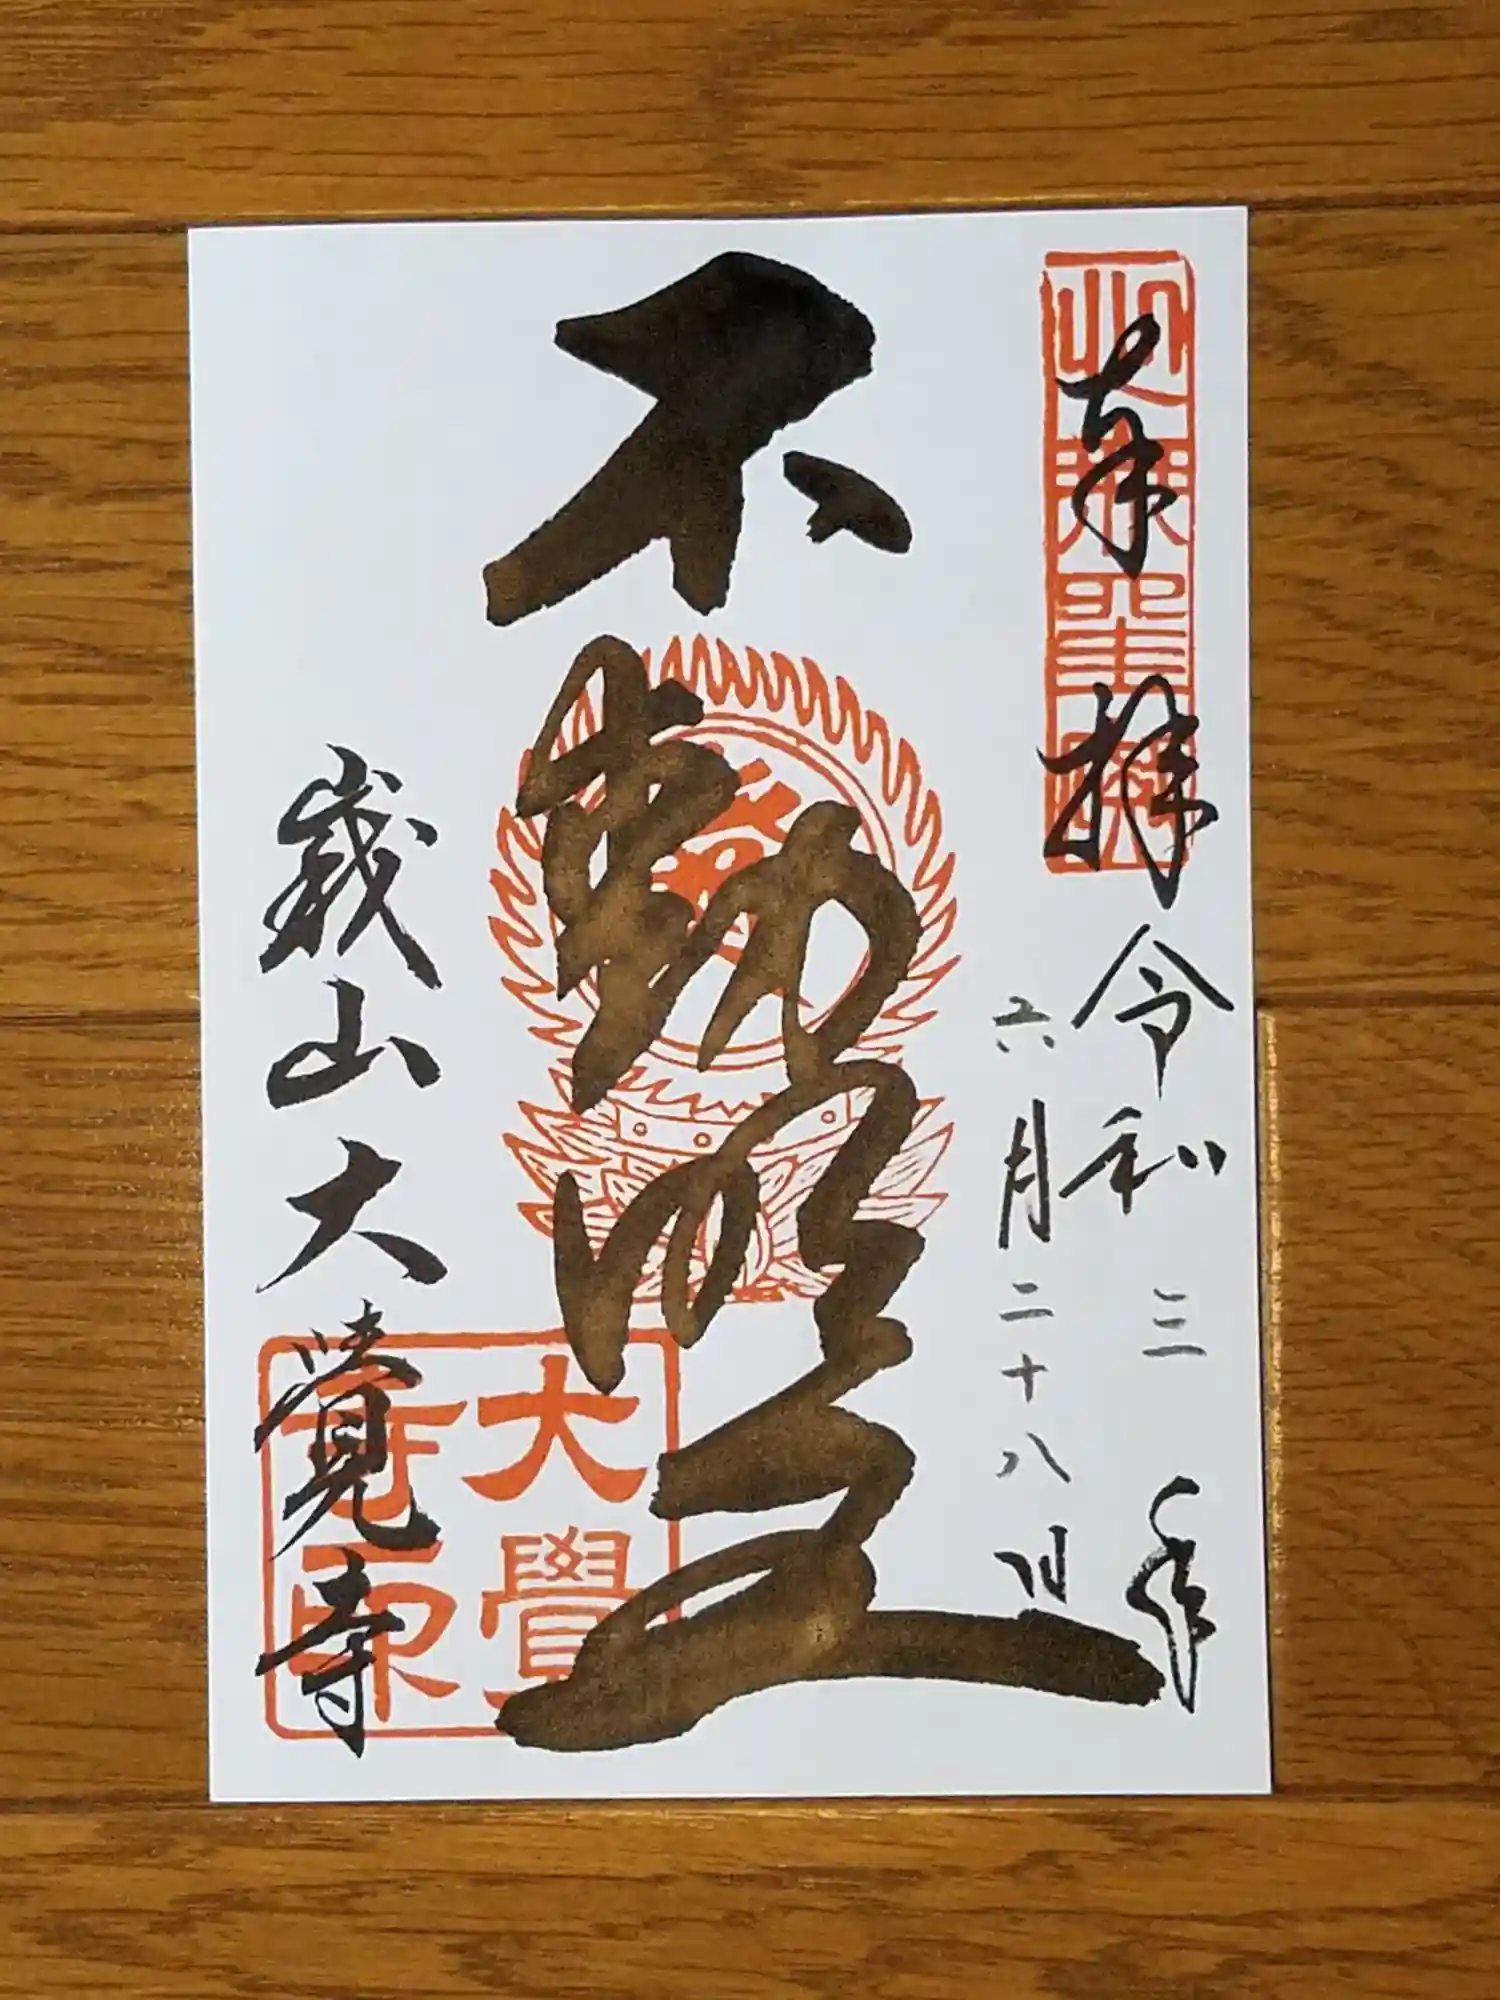 奉拝
令和三年
六月二十八日
不動明王
山大覚寺
大覺寺印